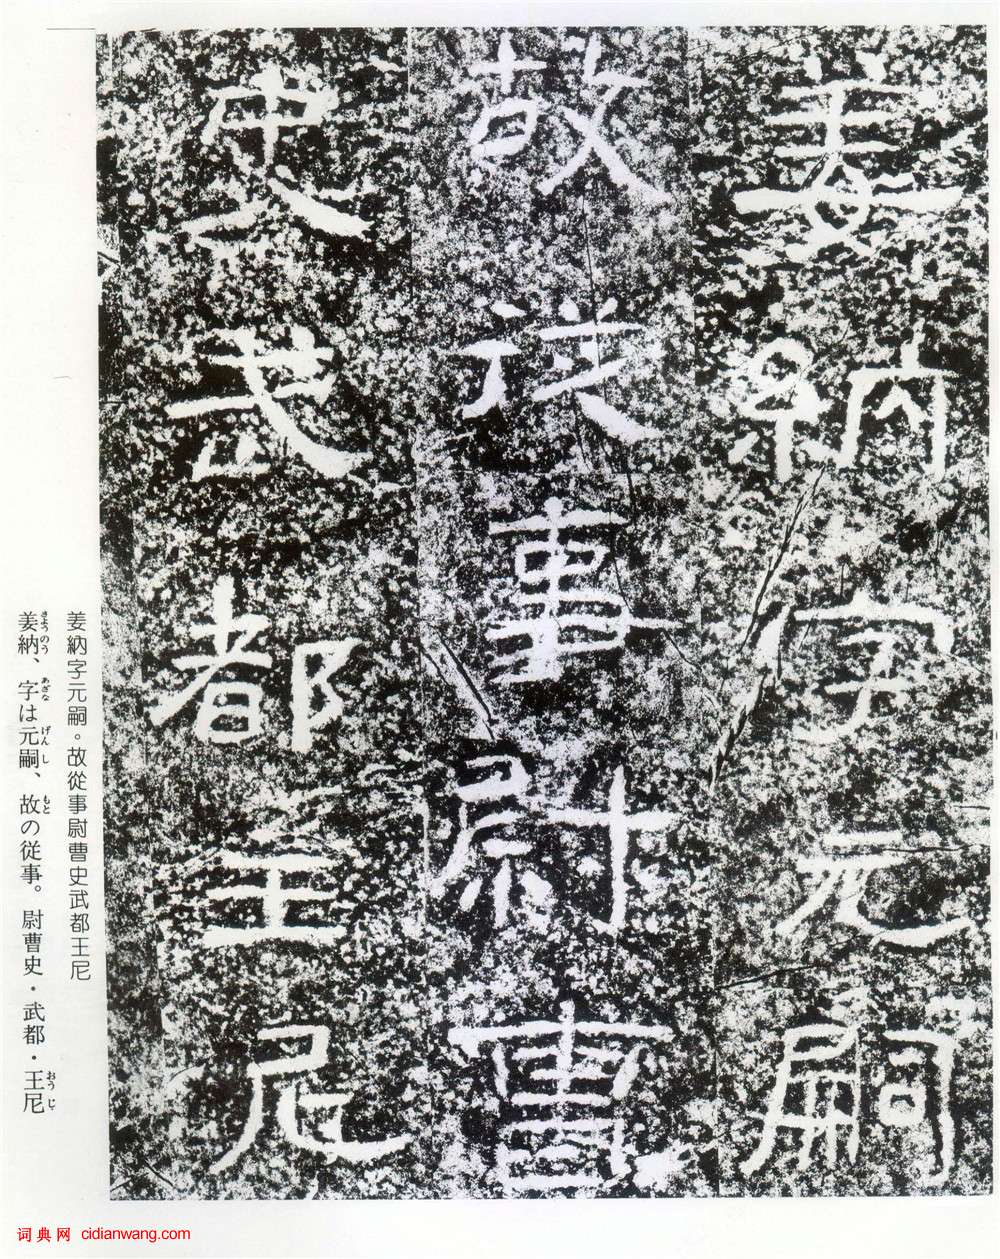 姜納字元嗣
故従事尉曹
史武都王尼
姜納字元嗣。故從事尉曹史武都王尼
姜納、字は元嗣、故の従事。尉曹史・武都・王尼
きょうのう あざな げんし もと おうじ
词典网 cidianwang.com